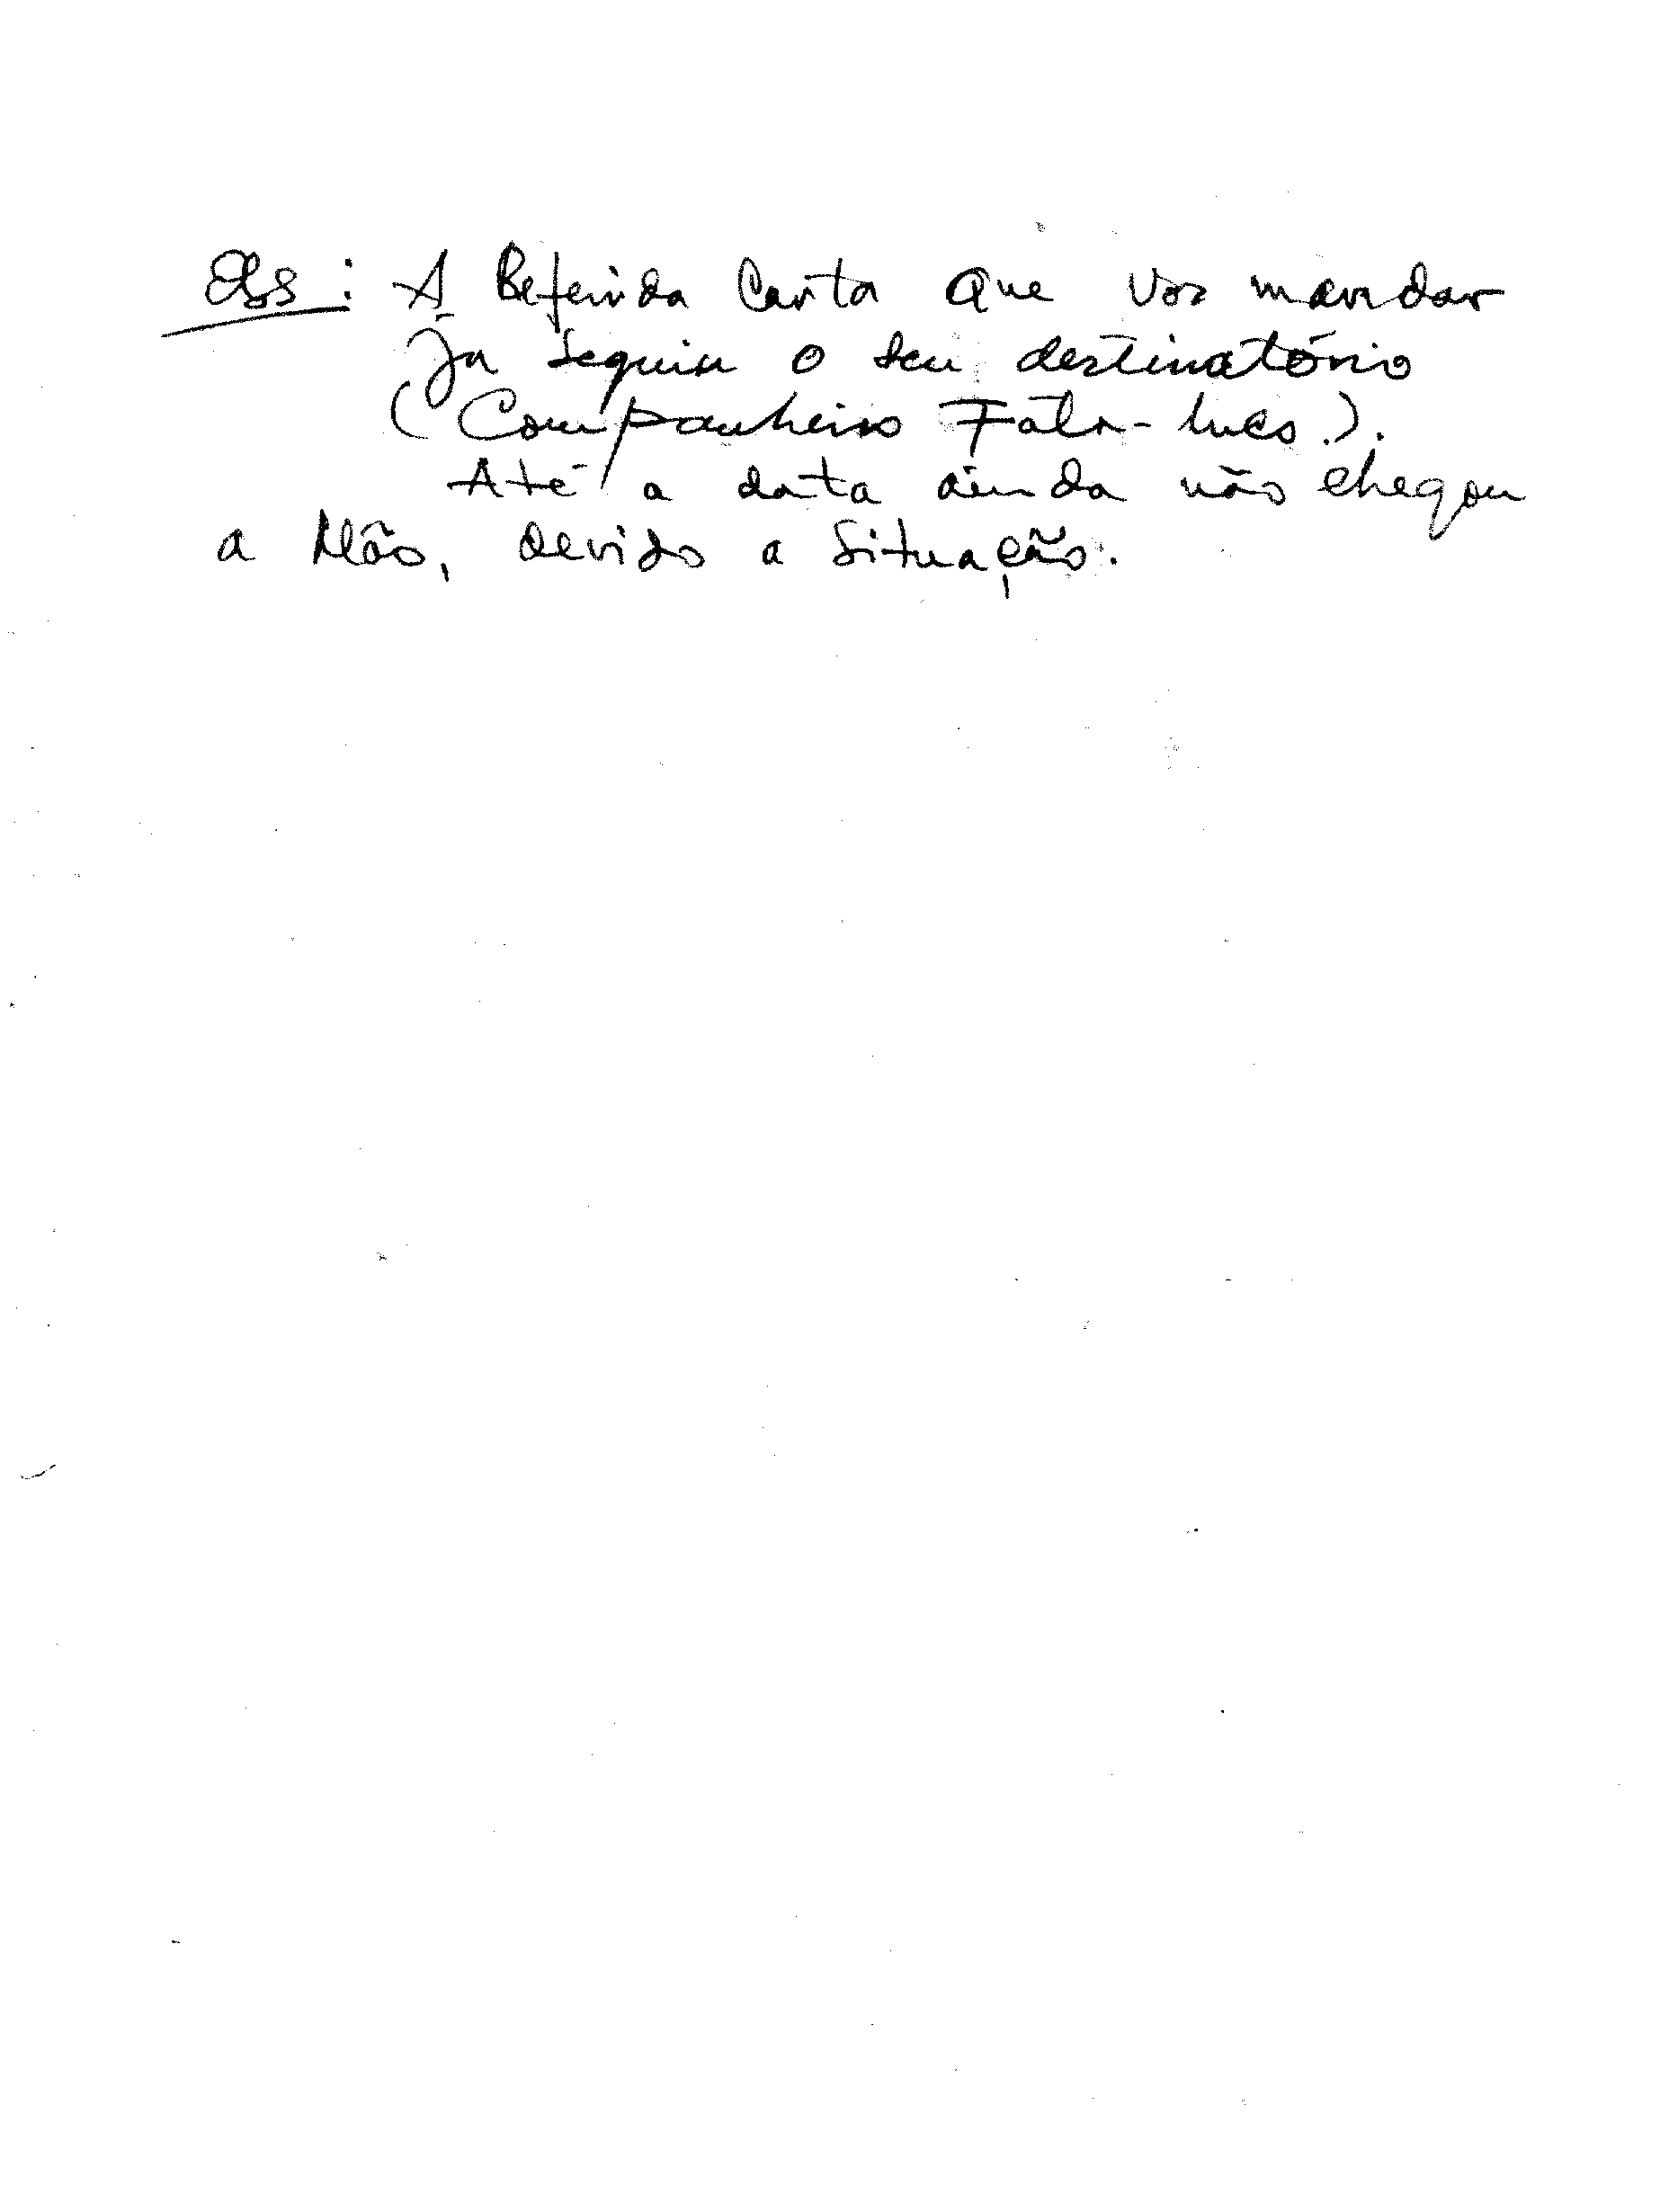 Obs: A Referida Carta que vos mandar
Já seguiu o seu destinatório
(Companheiro Fálu-Lues.).
Até a data ainda não chegou
a Mão, devido a Situação.